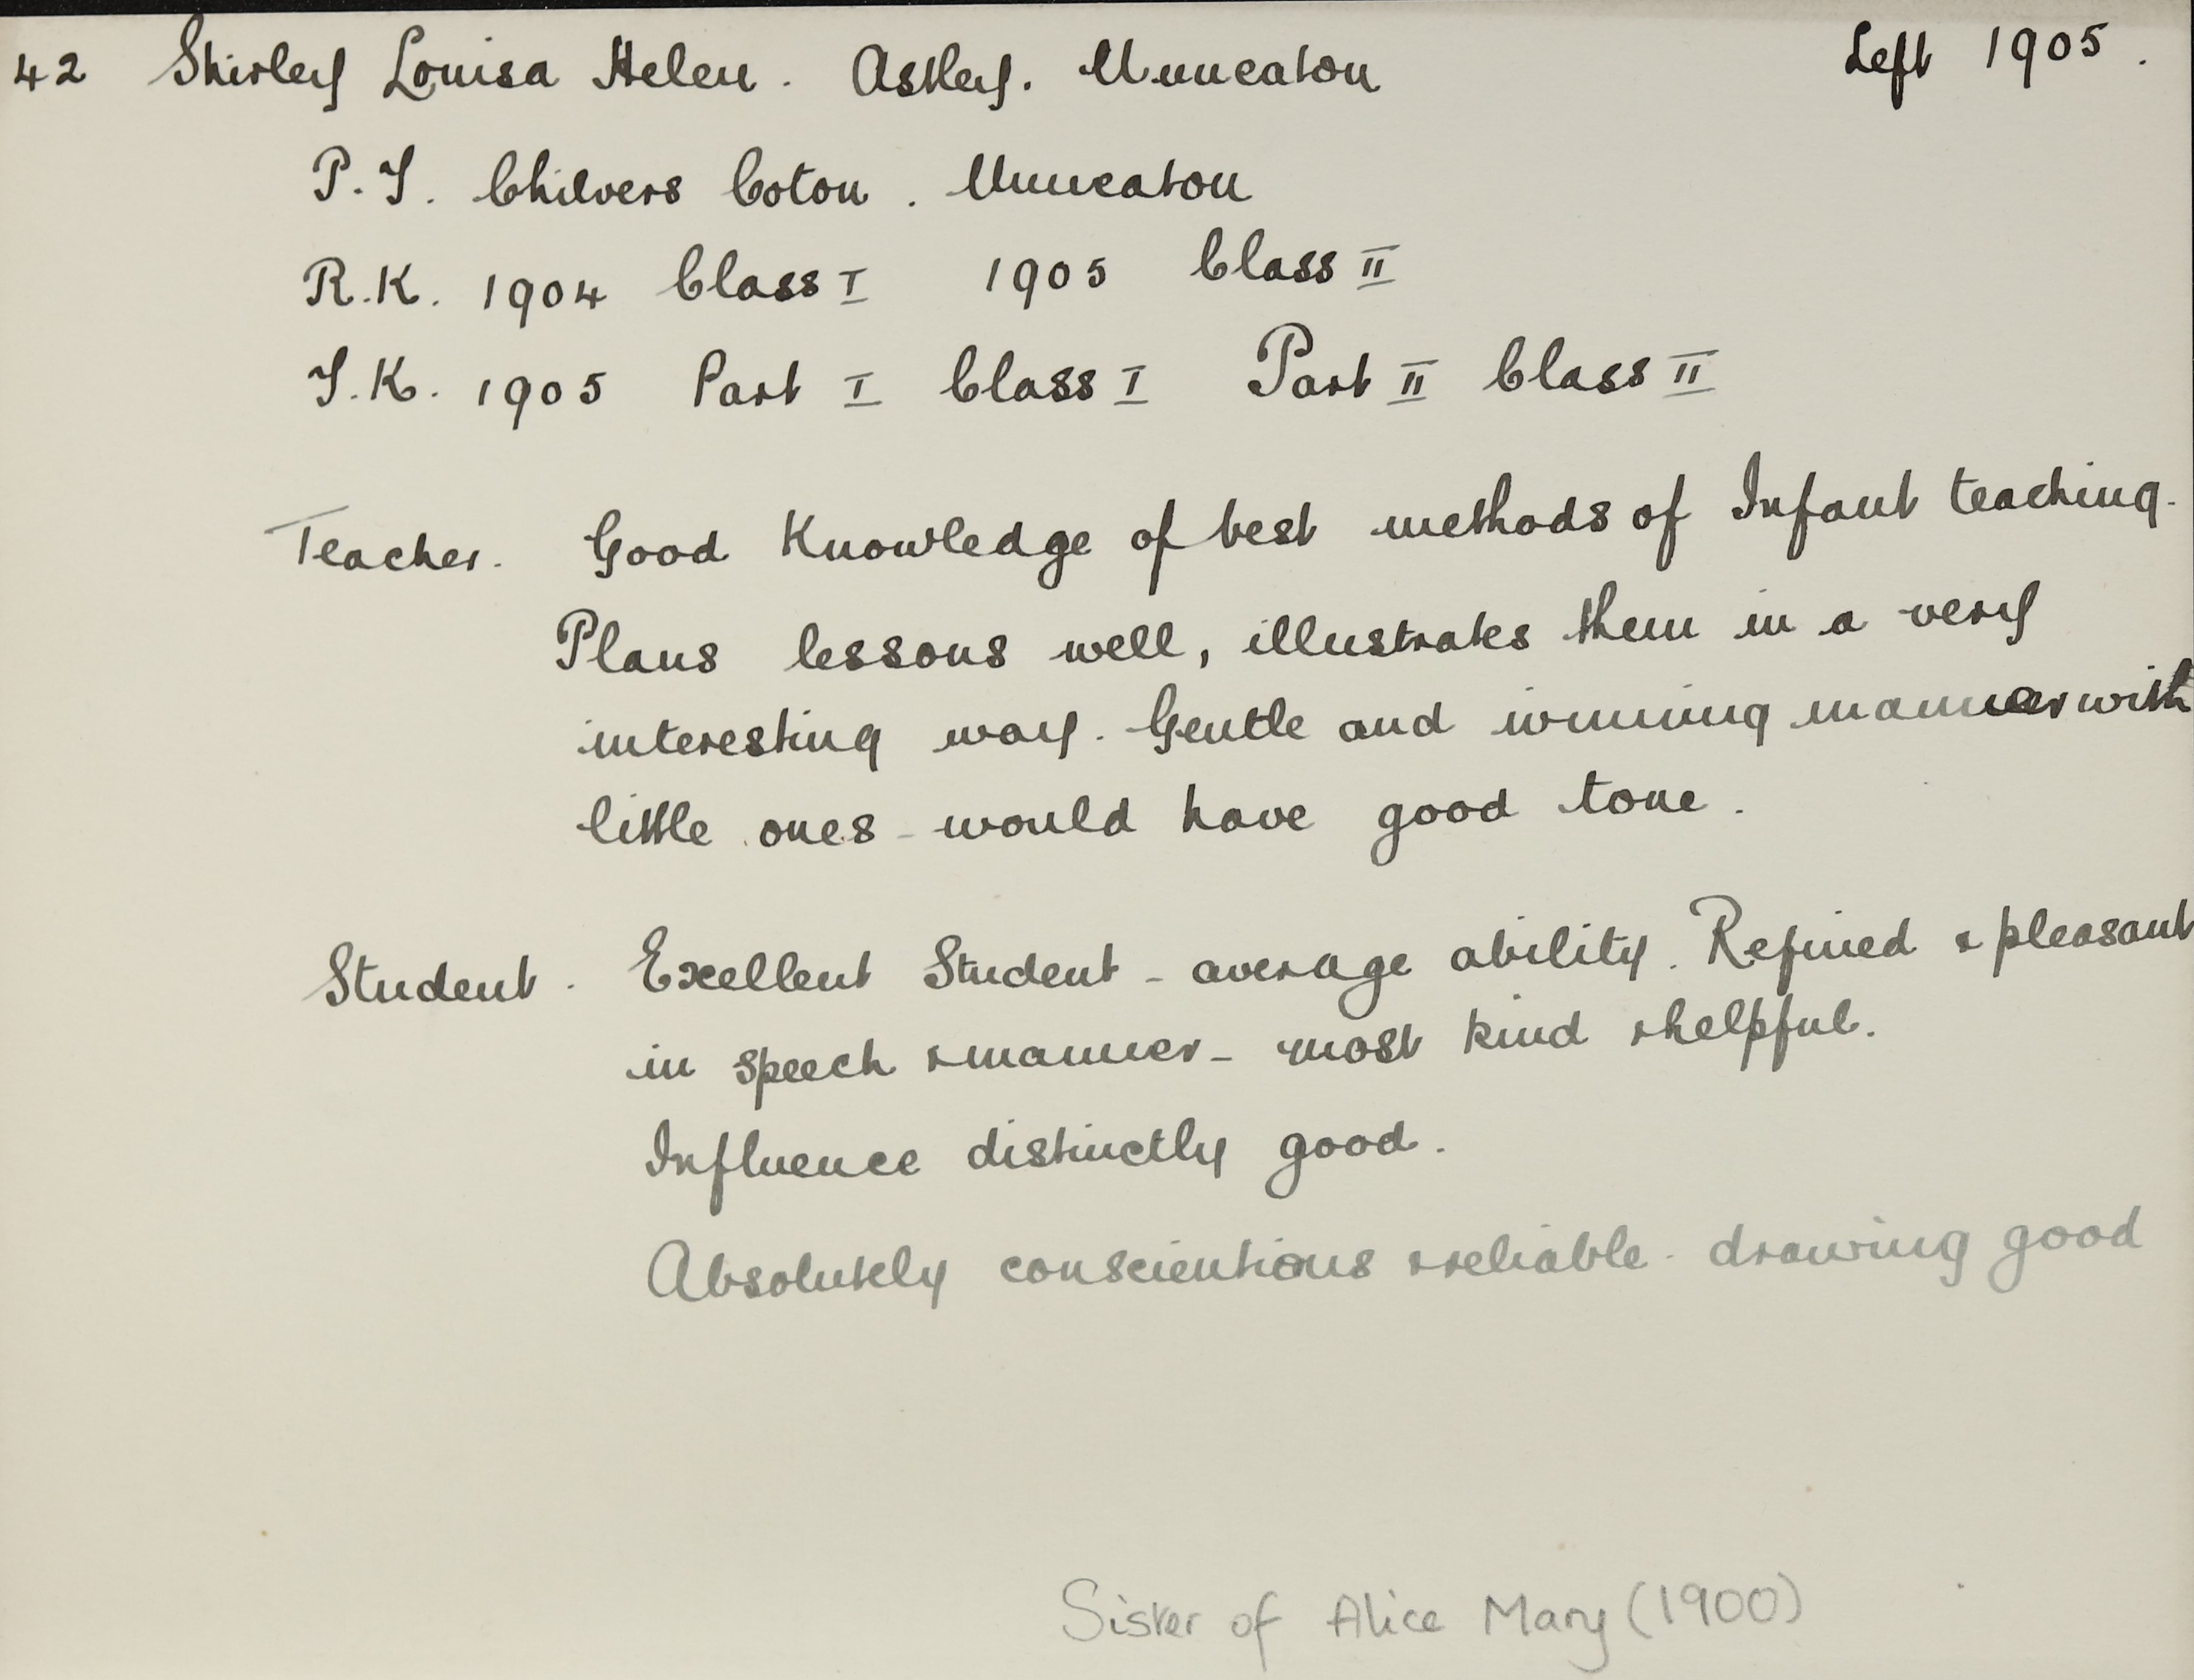 42 Shirley Louisa Helen. Astley. Nuneaton Left 1905.
P.T. Chilvers Coton. Nuneaton
R.K. 1904 Class I 1905 Class II
T.K. 1905 Part I Class I Part II Class II
Teacher. Good Knowledge of best methods of Infant teaching.
Plans lessons well, illustrates them in a very
interesting way. Gentle and winning manner with
little ones - would have good tone.
Student. Excellent Student - average ability. Refined & pleasant
in speech & manner - most kind & helpful.
Influence distinctly good.
Absolutely conscientious & reliable - drawing good
Sister of Alice Mary (1900)